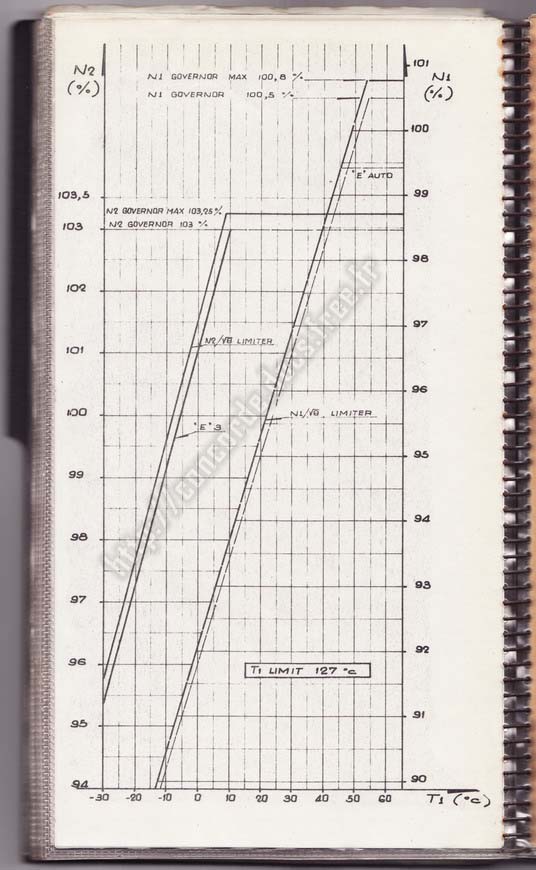 N2 (%)
N1 (%)
N1 GOVERNOR MAX 100,8 %
N1 GOVERNOR 100,5 %
"E" AUTO
N2 GOVERNOR MAX 103,25 %
N2 GOVERNOR 103 %
N2/√θ LIMITER
"E" 3
N1/√θ LIMITER
T1 LIMIT 127 °c
103,5
103
102
101
100
99
98
97
96
95
94
101
100
99
98
97
96
95
94
93
92
91
90
-30 -20 -10 0 10 20 30 40 50 60 T1 (°c)